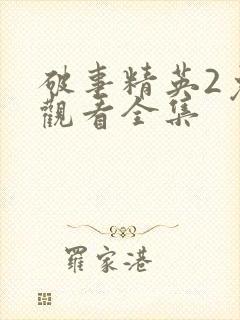 破事精英2免
觀看全集
羅家港